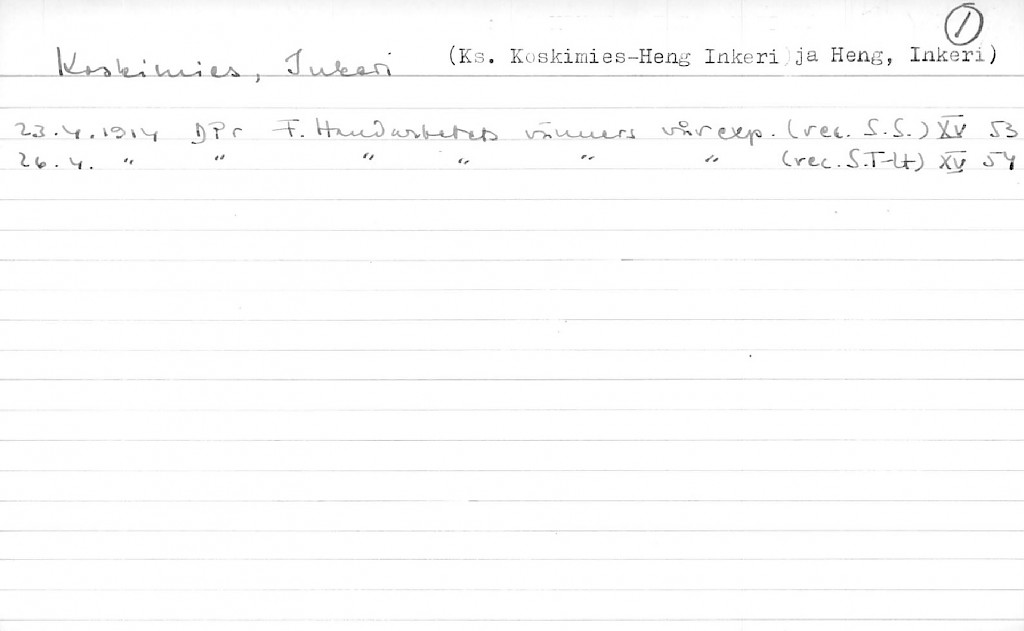 ①
Koskimies, Inkeri (Ks. Koskimies-Heng Inkeri ja Heng, Inkeri)
23.4.1914 DPr F. Handarbetets vänners vårexp. (rec. S.S.) XV 53
26.4. " " " " " " (rec. S.T-lt) XV 54